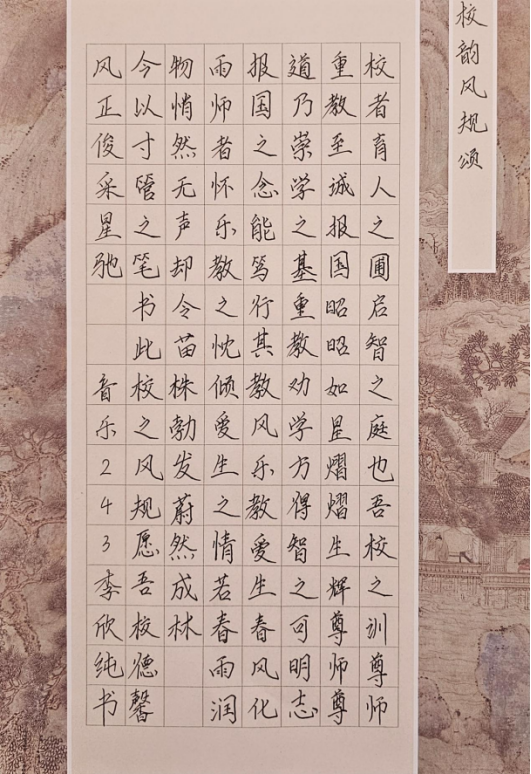 校韵风规颂
校者育人之圃启智之庭也吾校之训尊师
重教至诚报国昭昭如星熠熠生辉尊师尊
道乃崇学之基重教劝学方得智之可明志
报国之念能笃行其教风乐教爱生春风化
雨师者怀乐教之忱倾爱生之情若春雨润
物悄然无声却令苗株勃发蔚然成林
今以寸管之笔书此校之风规愿吾校德馨
风正俊采星驰 音乐243李欣纯书